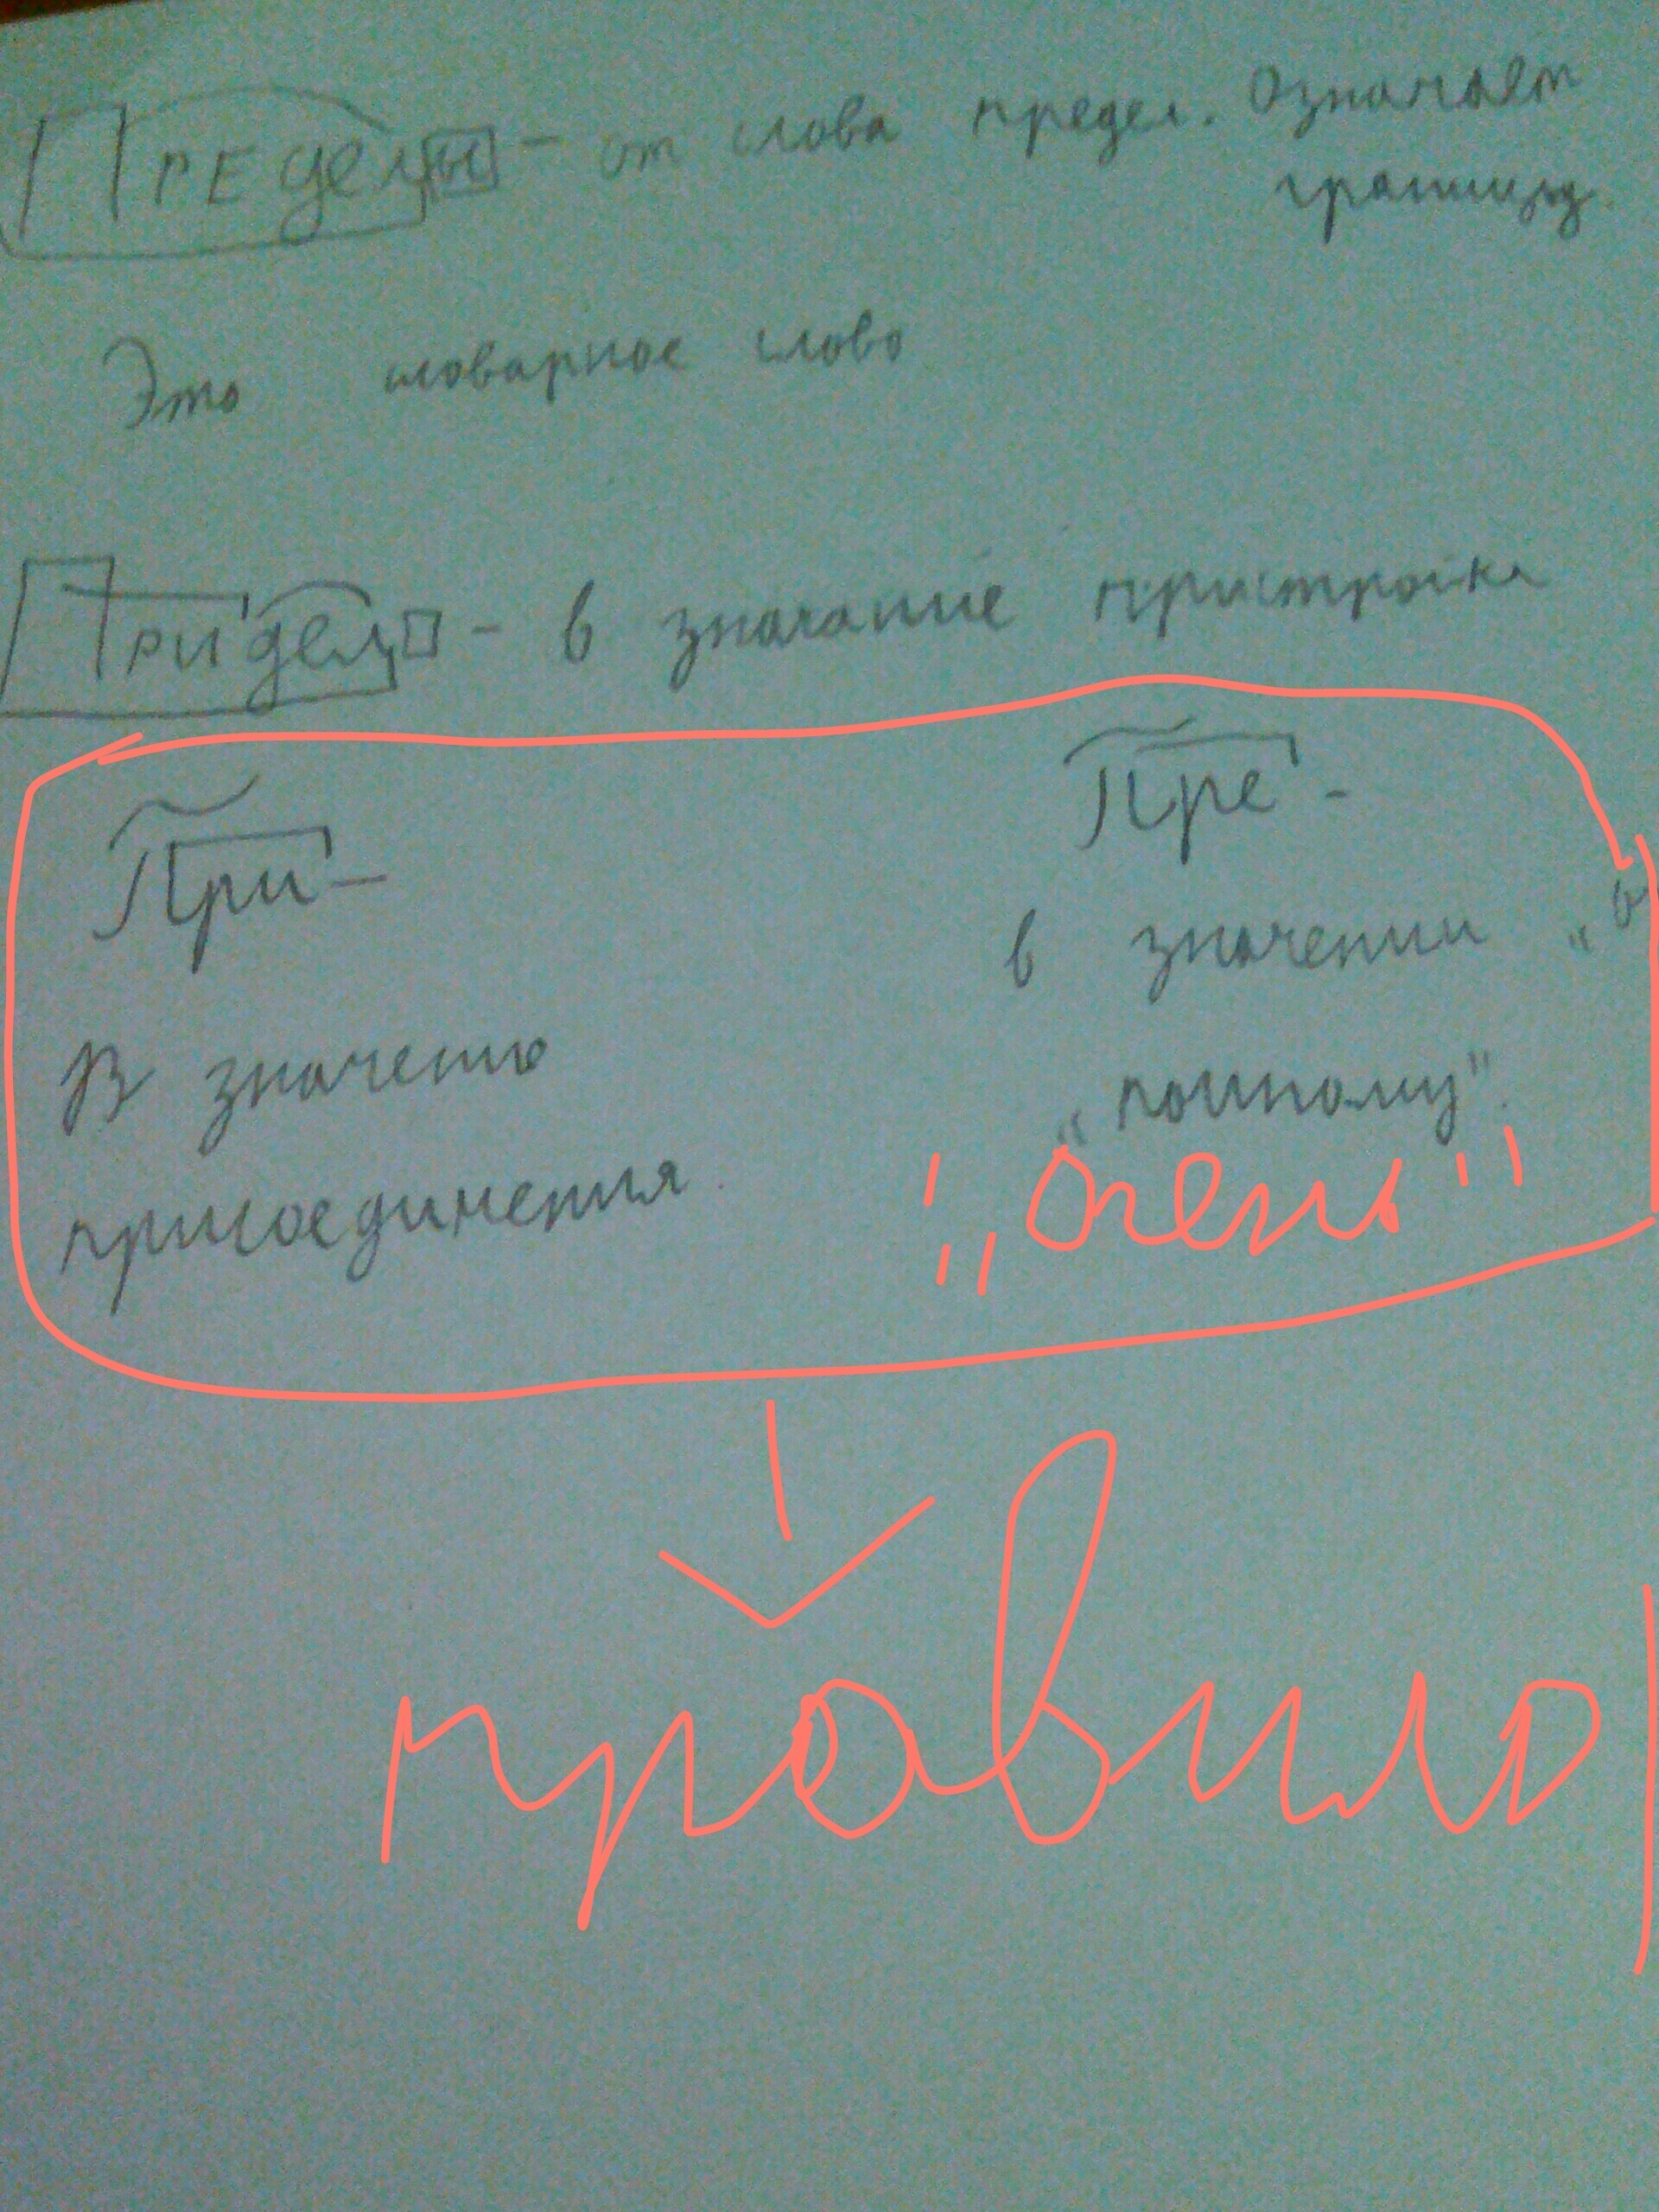 Пределы - от слова предел. Означает
границу.
Это словарное слово
Придел - в значание пристройка
При - Пре -
В значению в значении
присоединения "поиному".
"Очень"
правило